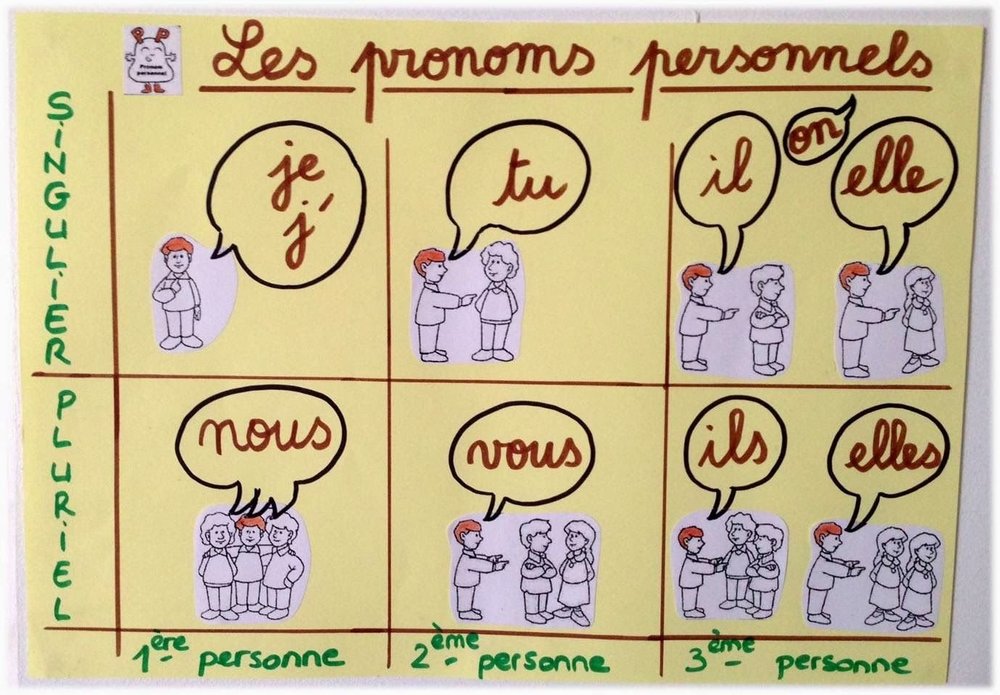 PP
Pronom
personnel
Les pronoms personnels
SINGULIER
je
j'
tu
il
on
elle
PLURIEL
nous
vous
ils
elles
1ère personne
2ème personne
3ème personne